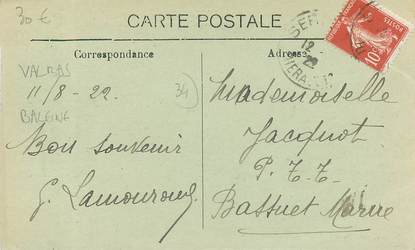 30 €
CARTE POSTALE
Correspondance
Adresse
VALRAS
11/8 - 22.
BALEINE
34
Bon souvenir
G. Lamouroux
Mademoiselle
Jacquot
P. T. T.
Bassuet Marne
SER
12
22
HERA
10c